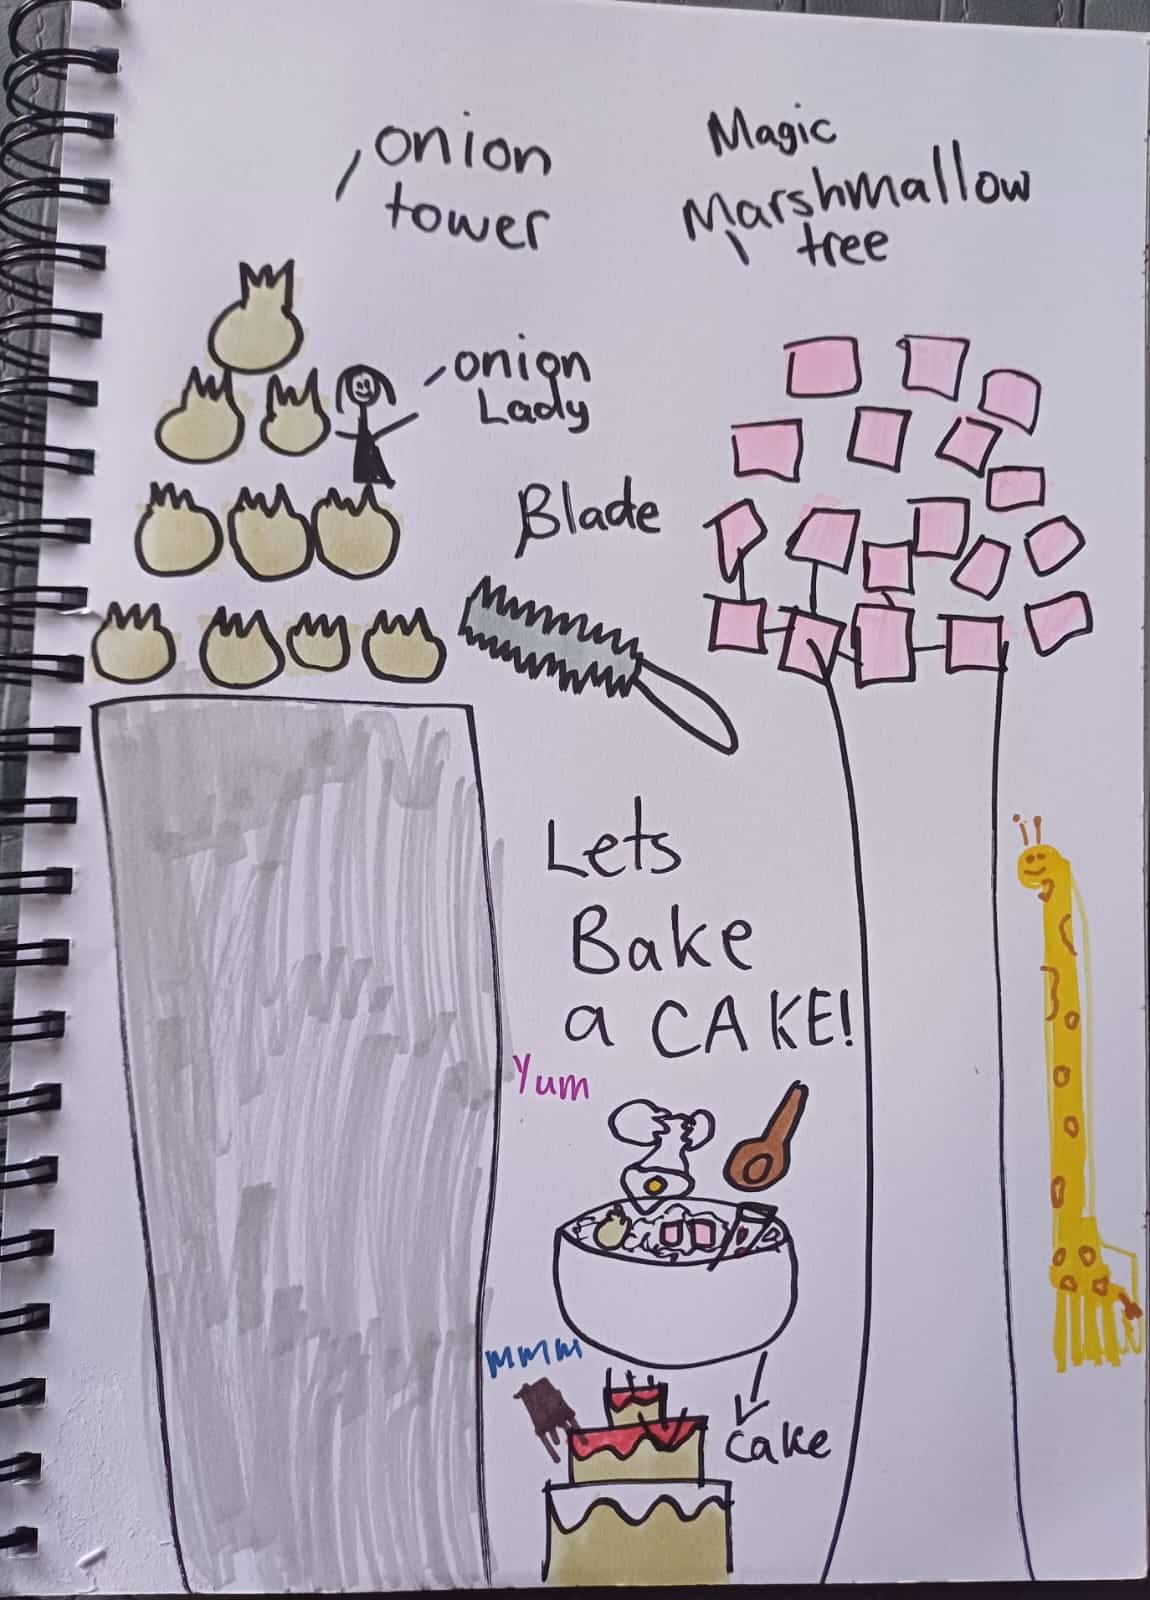 onion
tower
Magic
Marshmallow
tree
onion
Lady
Blade
Lets
Bake
a CAKE!
Yum
mmm
cake